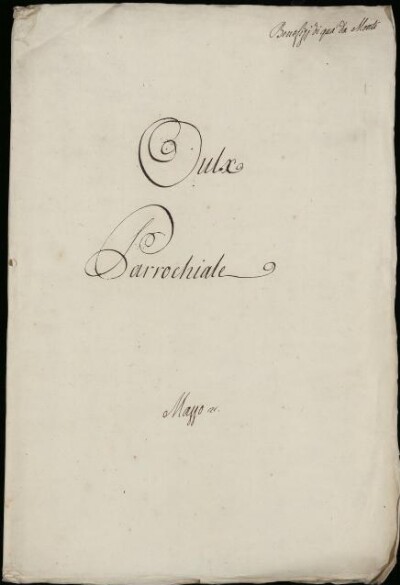 Benefizj di qua da Monti
Oulx
Parrochiale
Mazzo